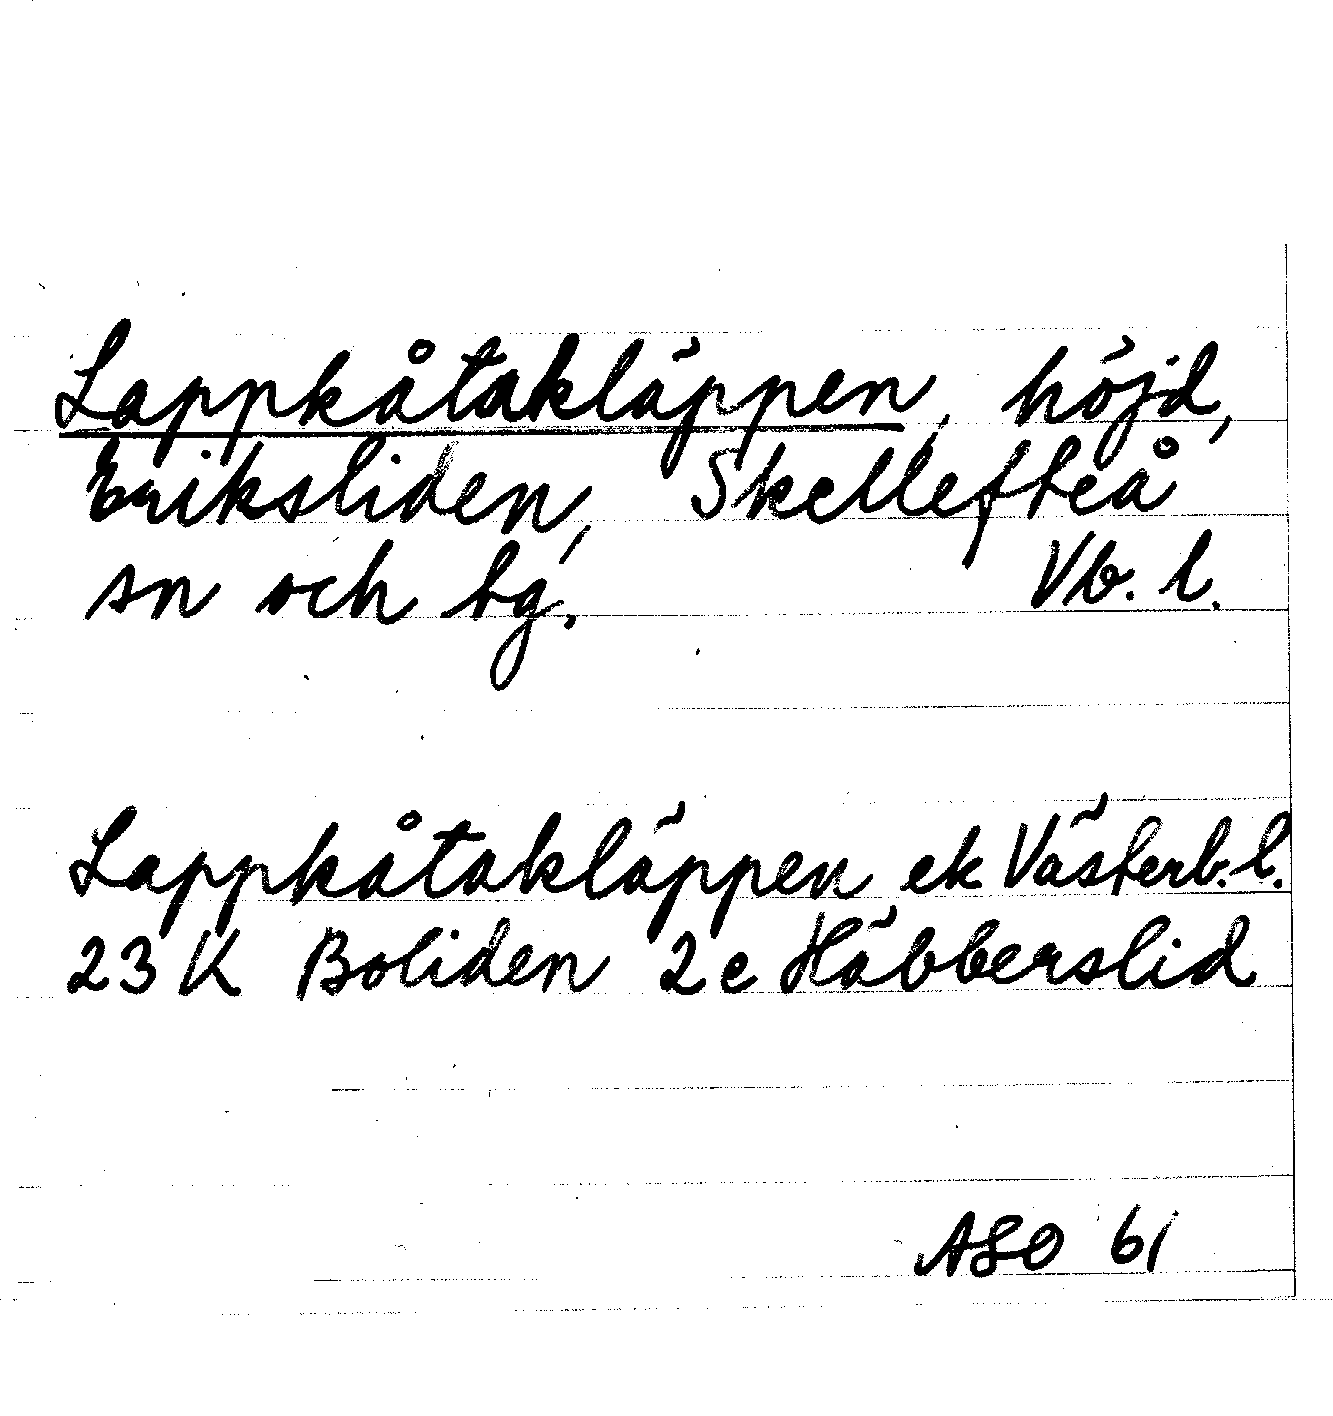 Lappkåtakläppen, höjd,
Eriksliden, Skellefteå
sn och tg.
Vb. l.
Lappkåtakläppen ek Västerb.l.
23 K Boliden 2e Häbberslid
ASO 61